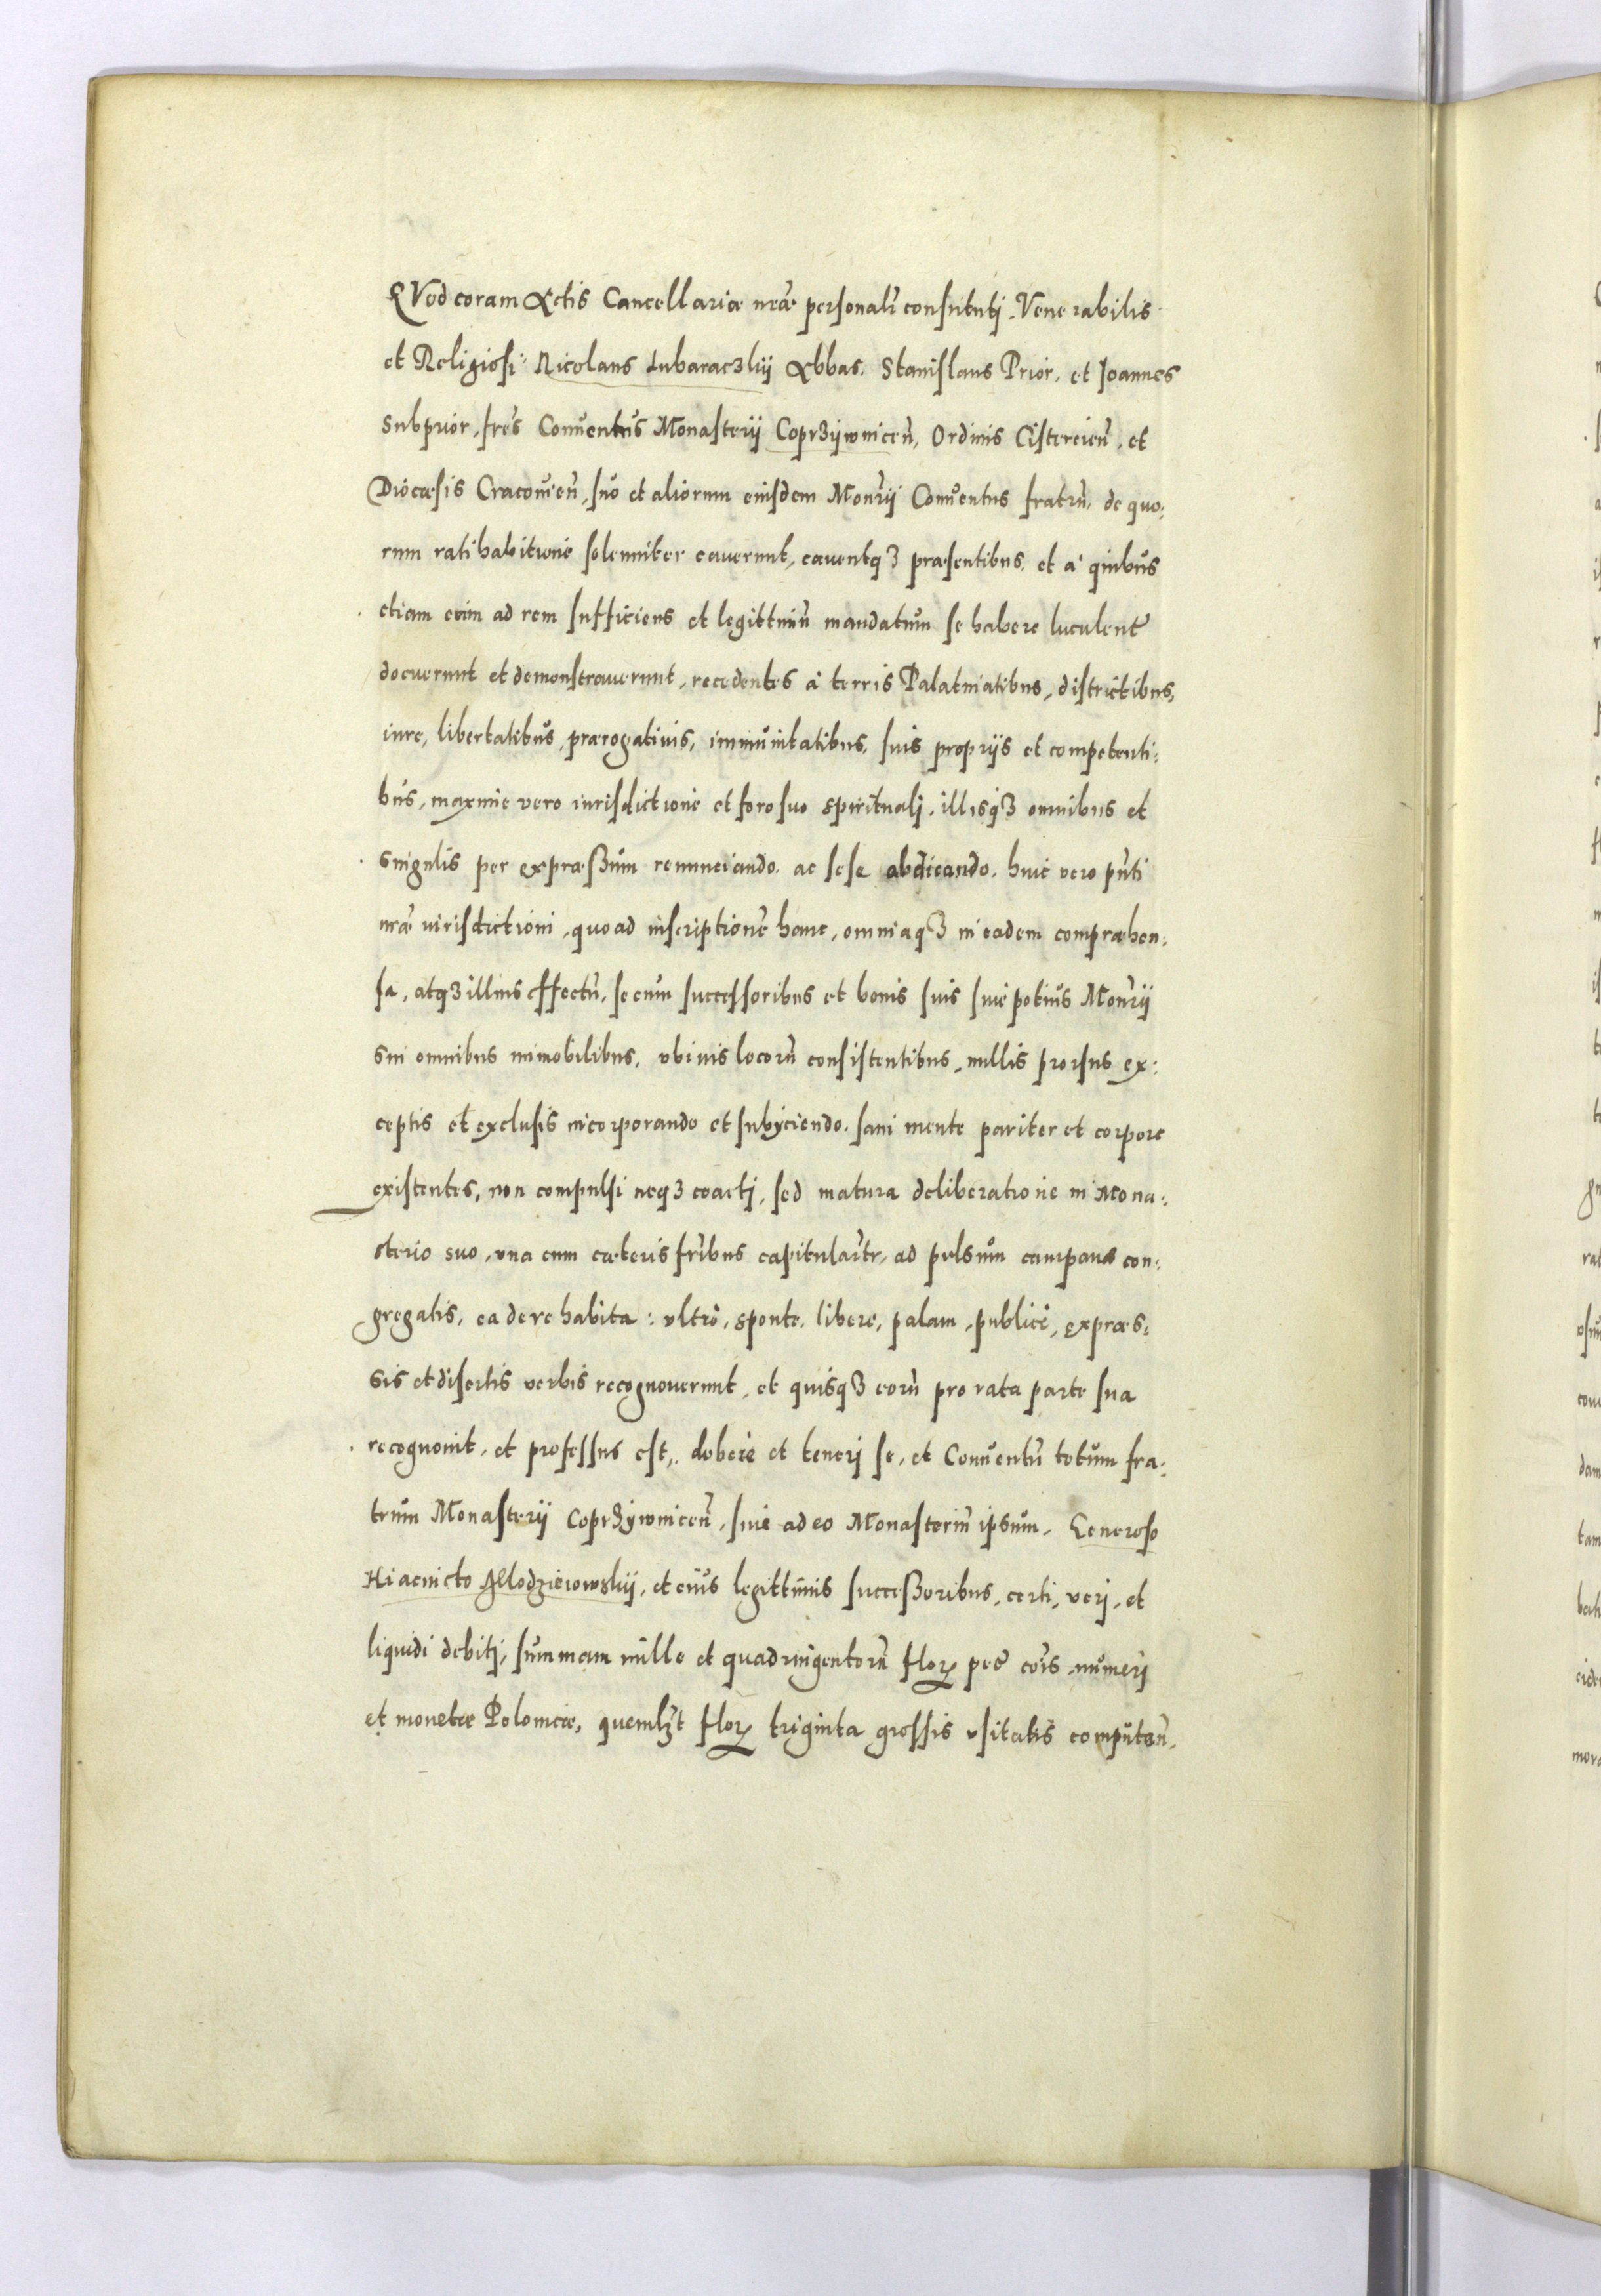 QVod coram Actis Cancellariæ nr̃æ personalr̃ constitutj. Venerabilis
et Religiosi Nicolaus Lubaraczkij Abbas. Stanislaus Prior, et Joannes
Subprior, fr̃es Conuentus Monasterij Coprzijwnicen̄, Ordinis Cistercien̄, et
Diocæsis Cracouien̄, suo et aliorum eiusdem Mon̄rij Conuentus fratrũ, de quo:
rum ratihabitione solenniter cauerunt, cauentqз præsentibus, et à quibus
etiam eum ad rem sufficiens et legittimũ mandatum se habere luculent̃
docuerunt et demonstrauerunt, recedentes à terris Palatinatibus, districtibus,
iure, libertatibus, prærogatiuis, immunitatibus, suis proprijs et competenti:
bus, maxime vero iurisdictione et foro suo spiritualj, illisqз omnibus et
singulis per expræßum renunciando, ac sese abdicando, huic vero pn̄ti
nr̃æ iurisdictioni, quoad inscriptionẽ hanc, omniaqз in eadem compræhen:
sa, atqз illius effectũ, se cum successoribus et bonis suis siue potius Mon̄rij
sui omnibus immobilibus, vbiuis locorũ consistentibus, nullis prorsus ex:
ceptis et exclusis incorporando et subijciendo, sani mente pariter et corpore
existentes, non compulsi neqз coactj, sed matura deliberatione in Mona:
sterio suo, vna cum cæteris fr̃ibus capitularr̃, ad pulsum campanæ con:
gregatis, ea de re habita: vltro, sponte, libere, palam, publice, expræs:
sis et disertis verbis recognouerunt, et quisqз eorũ pro rata parte sua
recognouit, et professus est, debere et tenerj se, et Conuentũ totum fra:
trum Monasterij Coprzijwnicen̄, siue adeo Monasteriũ ipsum, Generoso
Hiacincto Młodzieiowskij, et eius legittimis succeßoribus, certi, verj, et
liquidi debitj, summam mille et quadringentorũ floꝝ pec̃ cõis numerj
et monetæ Polonicæ, quemlзt floꝝ triginta grossis vsitatis computan̄.